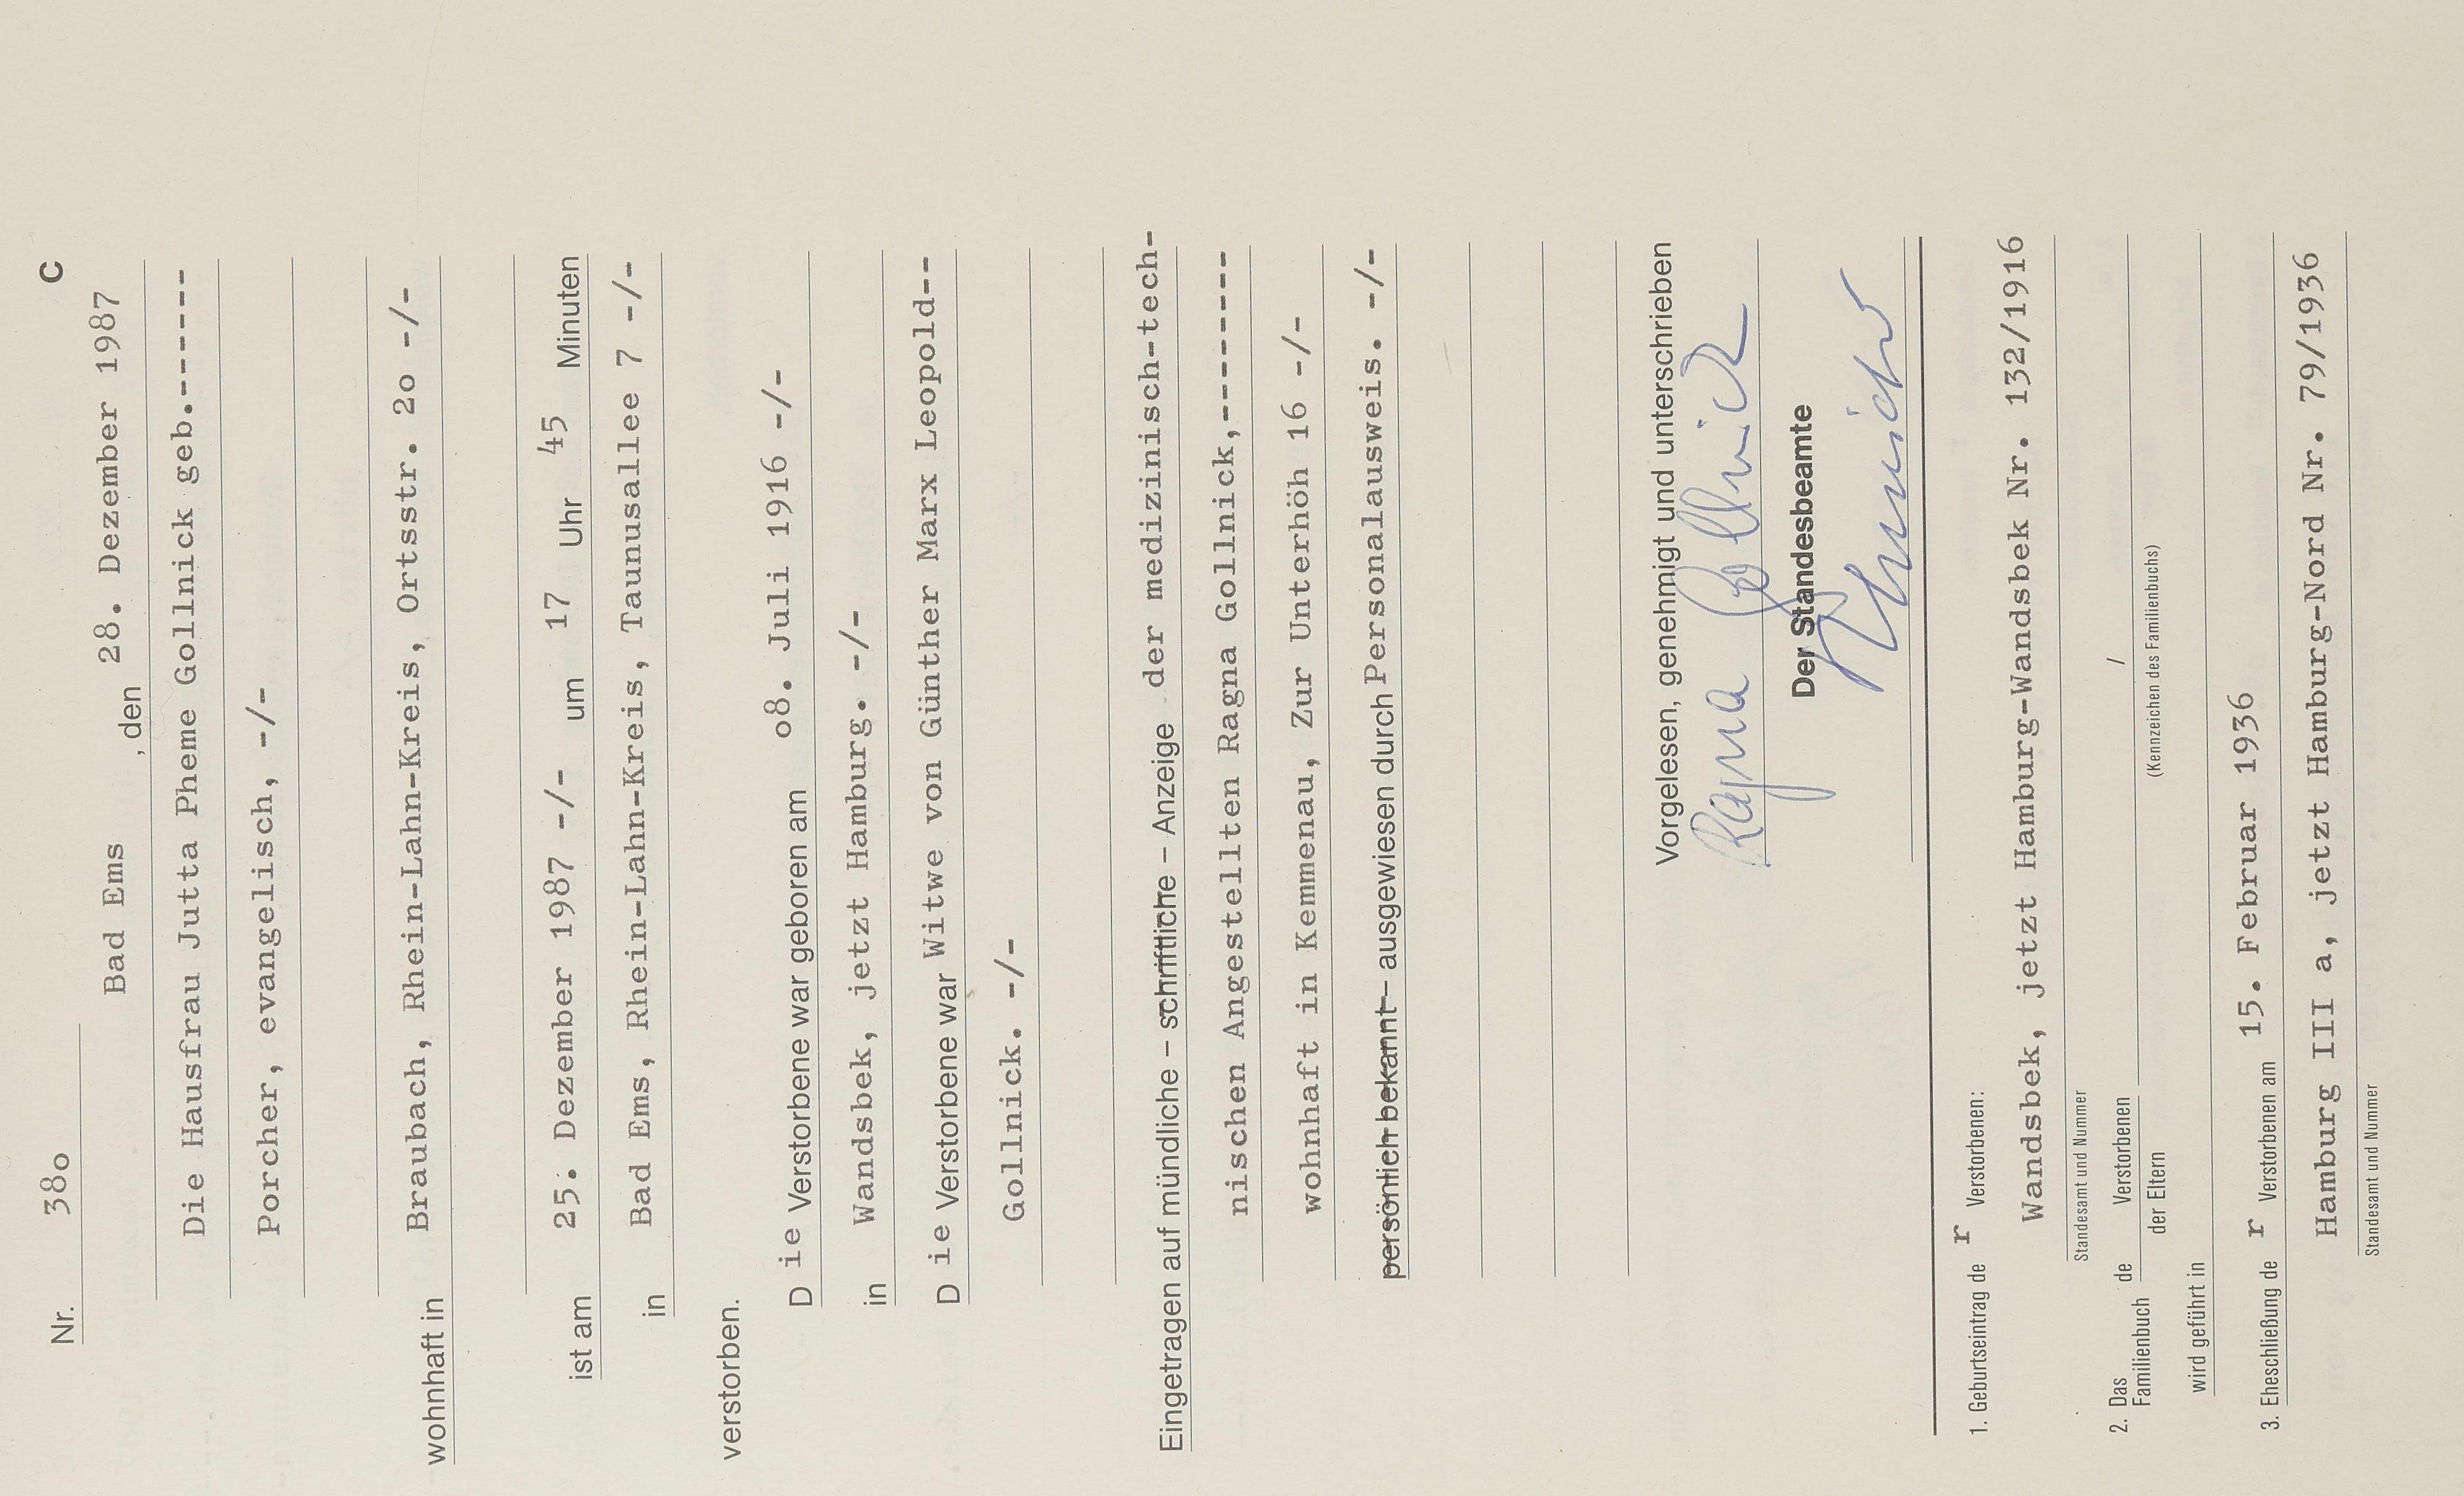 C
Nr. 38o
Bad Ems , den 28. Dezember 1987
Die Hausfrau Jutta Pheme Gollnick geb.------
Porcher, evangelisch, -/-
wohnhaft in Braubach, Rhein-Lahn-Kreis, Ortsstr. 2o -/-
ist am 25. Dezember 1987 -/- um 17 Uhr 45 Minuten
in Bad Ems, Rhein-Lahn-Kreis, Taunusallee 7 -/-
verstorben.
D ie Verstorbene war geboren am o8. Juli 1916 -/-
in Wandsbek, jetzt Hamburg. -/-
D ie Verstorbene war Witwe von Günther Marx Leopold--
Gollnick. -/-
Eingetragen auf mündliche – schriftliche – Anzeige der medizinisch-tech-
nischen Angestellten Ragna Gollnick,---------
wohnhaft in Kemmenau, Zur Unterhöh 16 -/-
persönlich bekannt – ausgewiesen durch Personalausweis. -/-
Vorgelesen, genehmigt und unterschrieben
Ragna Gollnick
Der Standesbeamte
1. Geburtseintrag de r Verstorbenen:
Wandsbek, jetzt Hamburg-Wandsbek Nr. 132/1916
Standesamt und Nummer
2. Das Familienbuch de Verstorbenen /
der Eltern (Kennzeichen des Familienbuchs)
wird geführt in
3. Eheschließung de r Verstorbenen am 15. Februar 1936
Hamburg III a, jetzt Hamburg-Nord Nr. 79/1936
Standesamt und Nummer